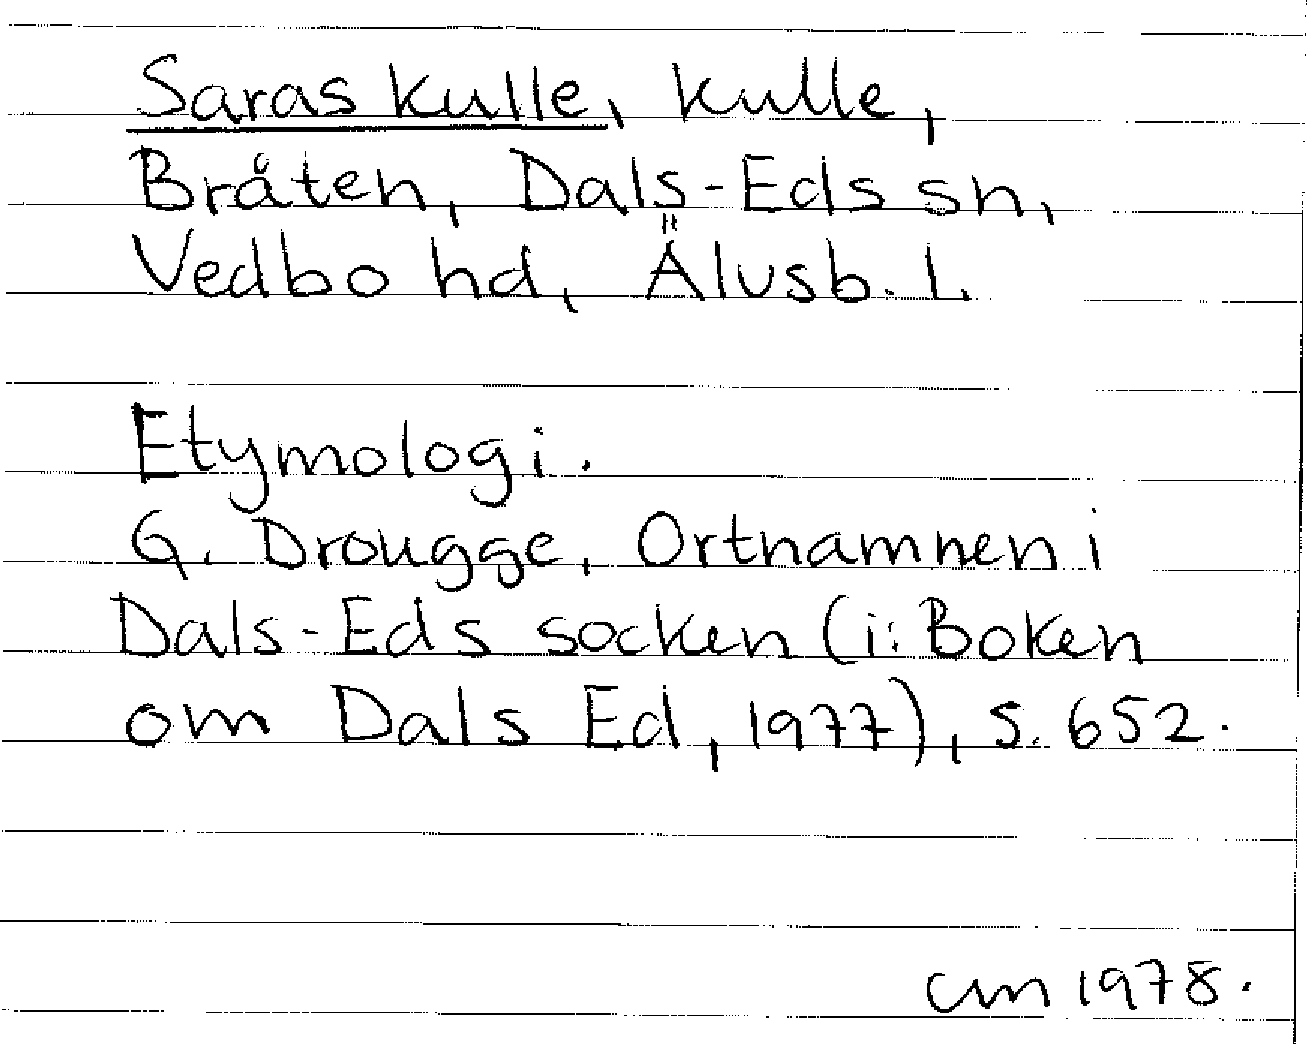 Saras kulle, kulle,
Bråten, Dals-Eds sn,
Vedbo hd, Älvsb. l.
Etymologi.
G. Drougge, Ortnamnen i
Dals-Eds socken (i: Boken
om Dals Ed, 1977), s. 652.
cm 1978.